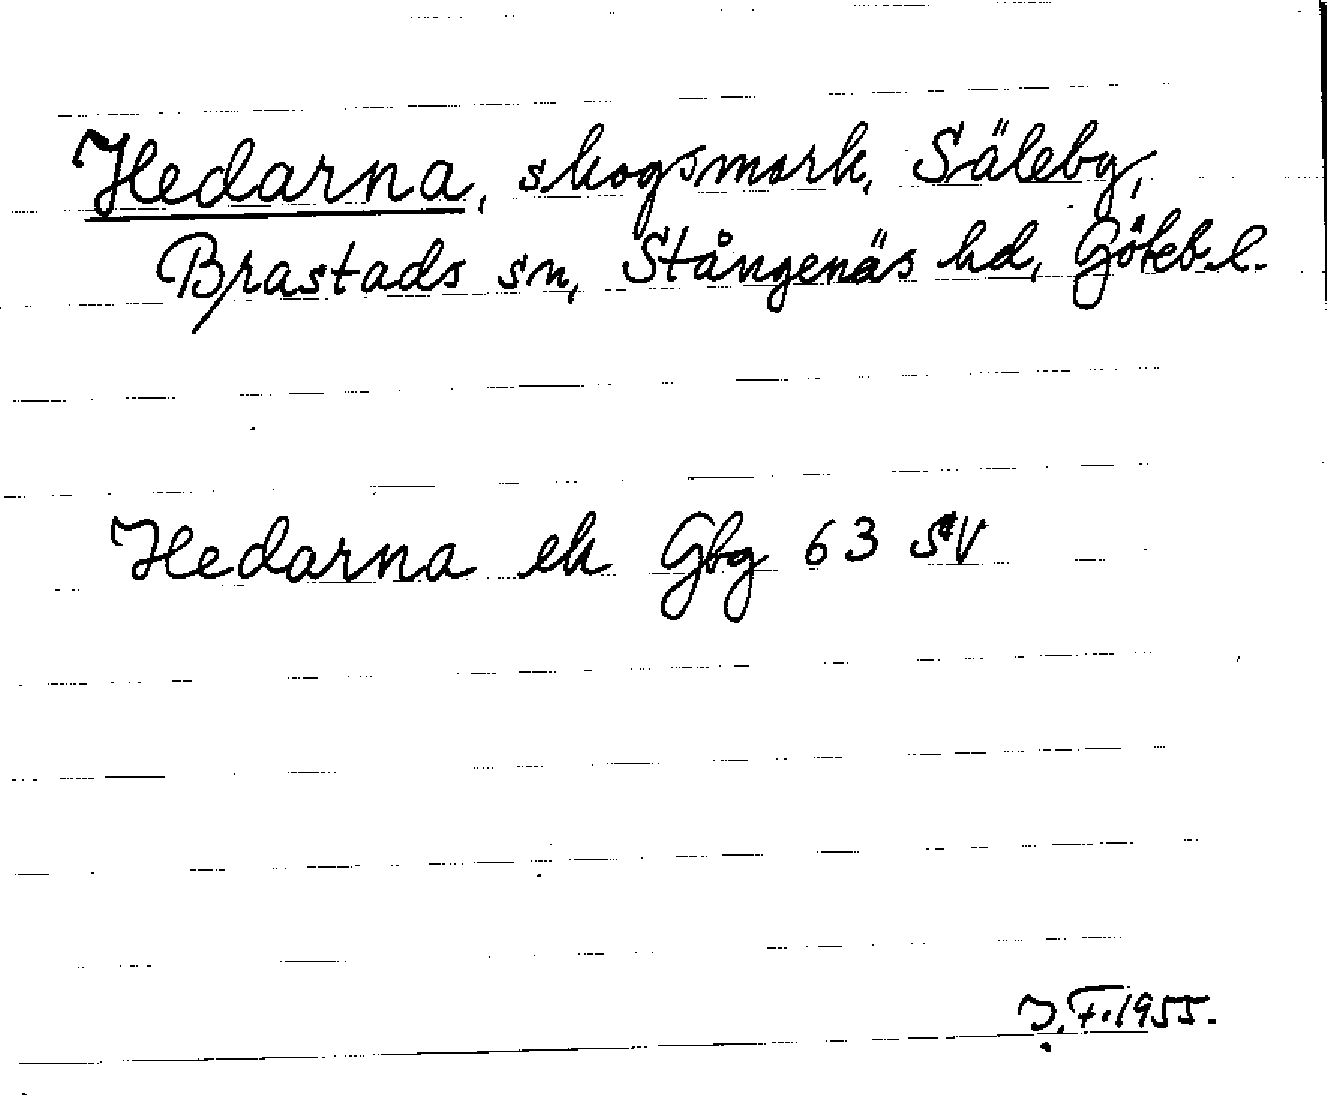 Hedarna, skogsmark, Säleby,
Brastads sn, Stångenäs hd, Göteb.l.
Hedarna ek Gbg 63 SV
J.F.1955.